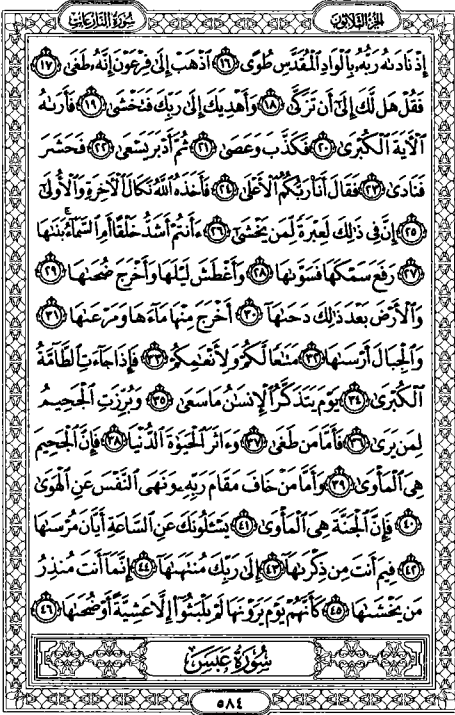 سُورَةُ النَّازِعَاتِ
الجُزءُ الثَّلَاثُونَ
إِذْ نَادَىٰهُ رَبُّهُۥ بِٱلْوَادِ ٱلْمُقَدَّسِ طُوًى ١٦ ٱذْهَبْ إِلَىٰ فِرْعَوْنَ إِنَّهُۥ طَغَىٰ ١٧
فَقُلْ هَل لَّكَ إِلَىٰٓ أَن تَزَكَّىٰ ١٨ وَأَهْدِيَكَ إِلَىٰ رَبِّكَ فَتَخْشَىٰ ١٩ فَأَرَىٰهُ
ٱلْأَيَةَ ٱلْكُبْرَىٰ ٢٠ فَكَذَّبَ وَعَصَىٰ ٢١ ثُمَّ أَدْبَرَ يَسْعَىٰ ٢٢ فَحَشَرَ
فَنَادَىٰ ٢٣ فَقَالَ أَنَا۠ رَبُّكُمُ ٱلْأَعْلَىٰ ٢٤ فَأَخَذَهُ ٱللَّهُ نَكَالَ ٱلْأَخِرَةِ وَٱلْأُولَىٰٓ
٢٥ إِنَّ فِى ذَٰلِكَ لَعِبْرَةً لِّمَن يَخْشَىٰٓ ٢٦ ءَأَنتُمْ أَشَدُّ خَلْقًا أَمِ ٱلسَّمَآءُ ۚ بَنَىٰهَا
٢٧ رَفَعَ سَمْكَهَا فَسَوَّىٰهَا ٢٨ وَأَغْطَشَ لَيْلَهَا وَأَخْرَجَ ضُحَىٰهَا ٢٩
وَٱلْأَرْضَ بَعْدَ ذَٰلِكَ دَحَىٰهَآ ٣٠ أَخْرَجَ مِنْهَا مَآءَهَا وَمَرْعَىٰهَا ٣١
وَٱلْجِبَالَ أَرْسَىٰهَا ٣٢ مَتَٰعًا لَّكُمْ وَلِأَنْعَٰمِكُمْ ٣٣ فَإِذَا جَآءَتِ ٱلطَّآمَّةُ
ٱلْكُبْرَىٰ ٣٤ يَوْمَ يَتَذَكَّرُ ٱلْإِنسَٰنُ مَا سَعَىٰ ٣٥ وَبُرِّزَتِ ٱلْجَحِيمُ
لِمَن يَرَىٰ ٣٦ فَأَمَّا مَن طَغَىٰ ٣٧ وَءَاثَرَ ٱلْحَيَوٰةَ ٱلدُّنْيَا ٣٨ فَإِنَّ ٱلْجَحِيمَ
هِىَ ٱلْمَأْوَىٰ ٣٩ وَأَمَّا مَنْ خَافَ مَقَامَ رَبِّهِۦ وَنَهَى ٱلنَّفْسَ عَنِ ٱلْهَوَىٰ
٤٠ فَإِنَّ ٱلْجَنَّةَ هِىَ ٱلْمَأْوَىٰ ٤١ يَسْـَٔلُونَكَ عَنِ ٱلسَّاعَةِ أَيَّانَ مُرْسَىٰهَا
٤٢ فِيمَ أَنتَ مِن ذِكْرَىٰهَآ ٤٣ إِلَىٰ رَبِّكَ مُنتَهَىٰهَآ ٤٤ إِنَّمَآ أَنتَ مُنذِرُ
مَن يَخْشَىٰهَا ٤٥ كَأَنَّهُمْ يَوْمَ يَرَوْنَهَا لَمْ يَلْبَثُوٓا۟ إِلَّا عَشِيَّةً أَوْ ضُحَىٰهَا ٤٦
سُورَةُ عَبَسَ
٥٨٤